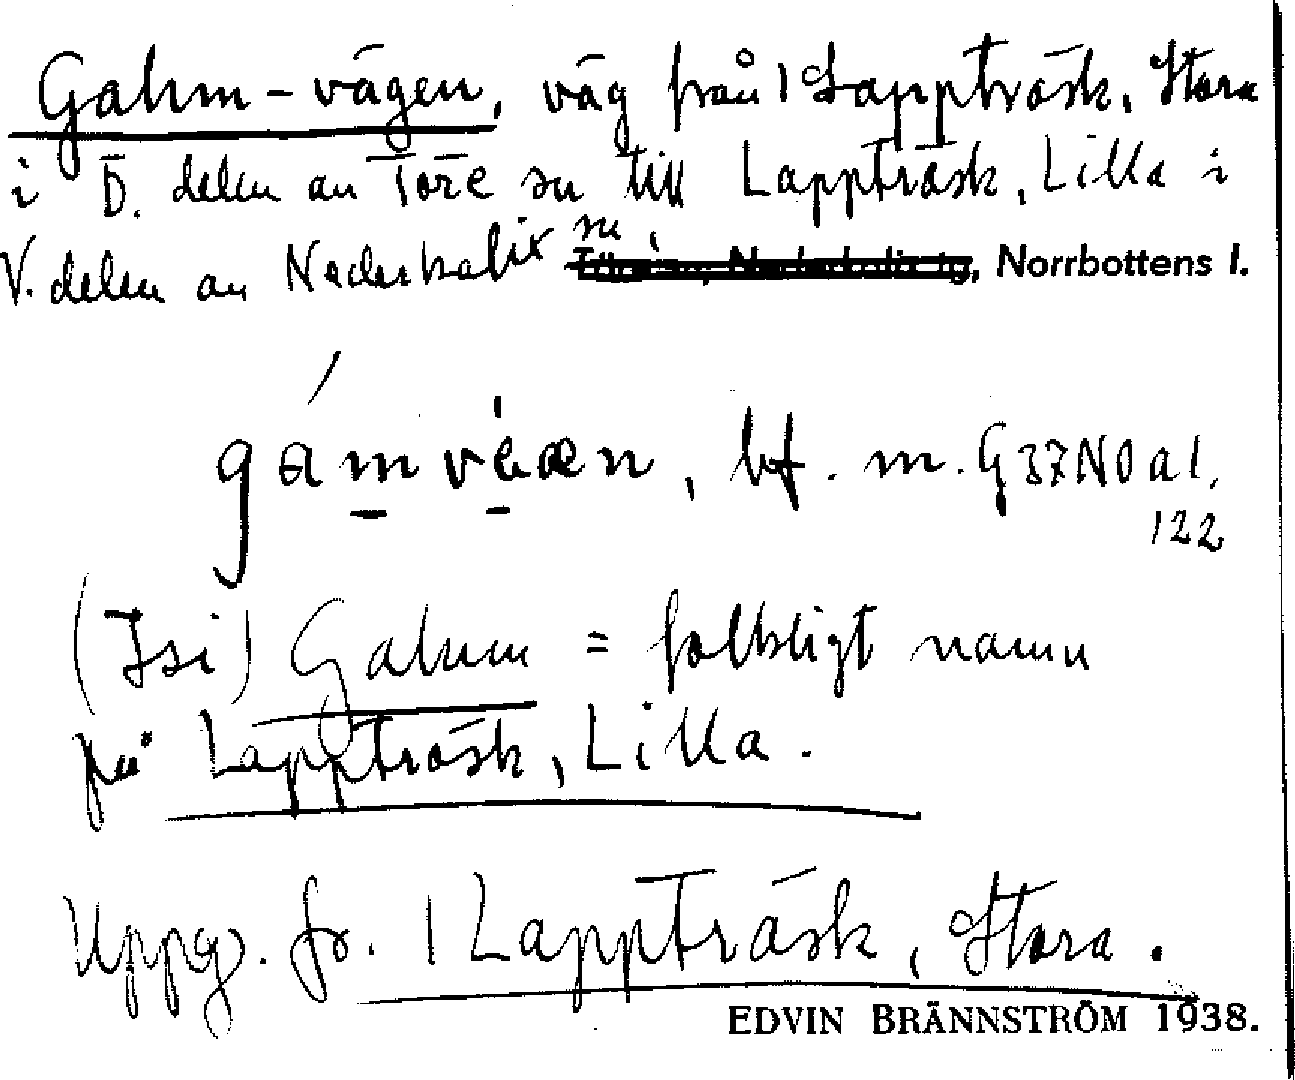 Gahm-vägen, väg från 1 Lappträsk, Stora
i Ö. delen av Töre sn till Lappträsk, Lilla i
V. delen av Nederkalix sn, Norrbottens l.
gamvä́æn, bf. m. G 37 N O a 1.
122
(Isi) Gahm = folkligt namn
på Lappträsk, Lilla.
Uppg. fr. 1 Lappträsk, Stora.
EDVIN BRÄNNSTRÖM 1938.